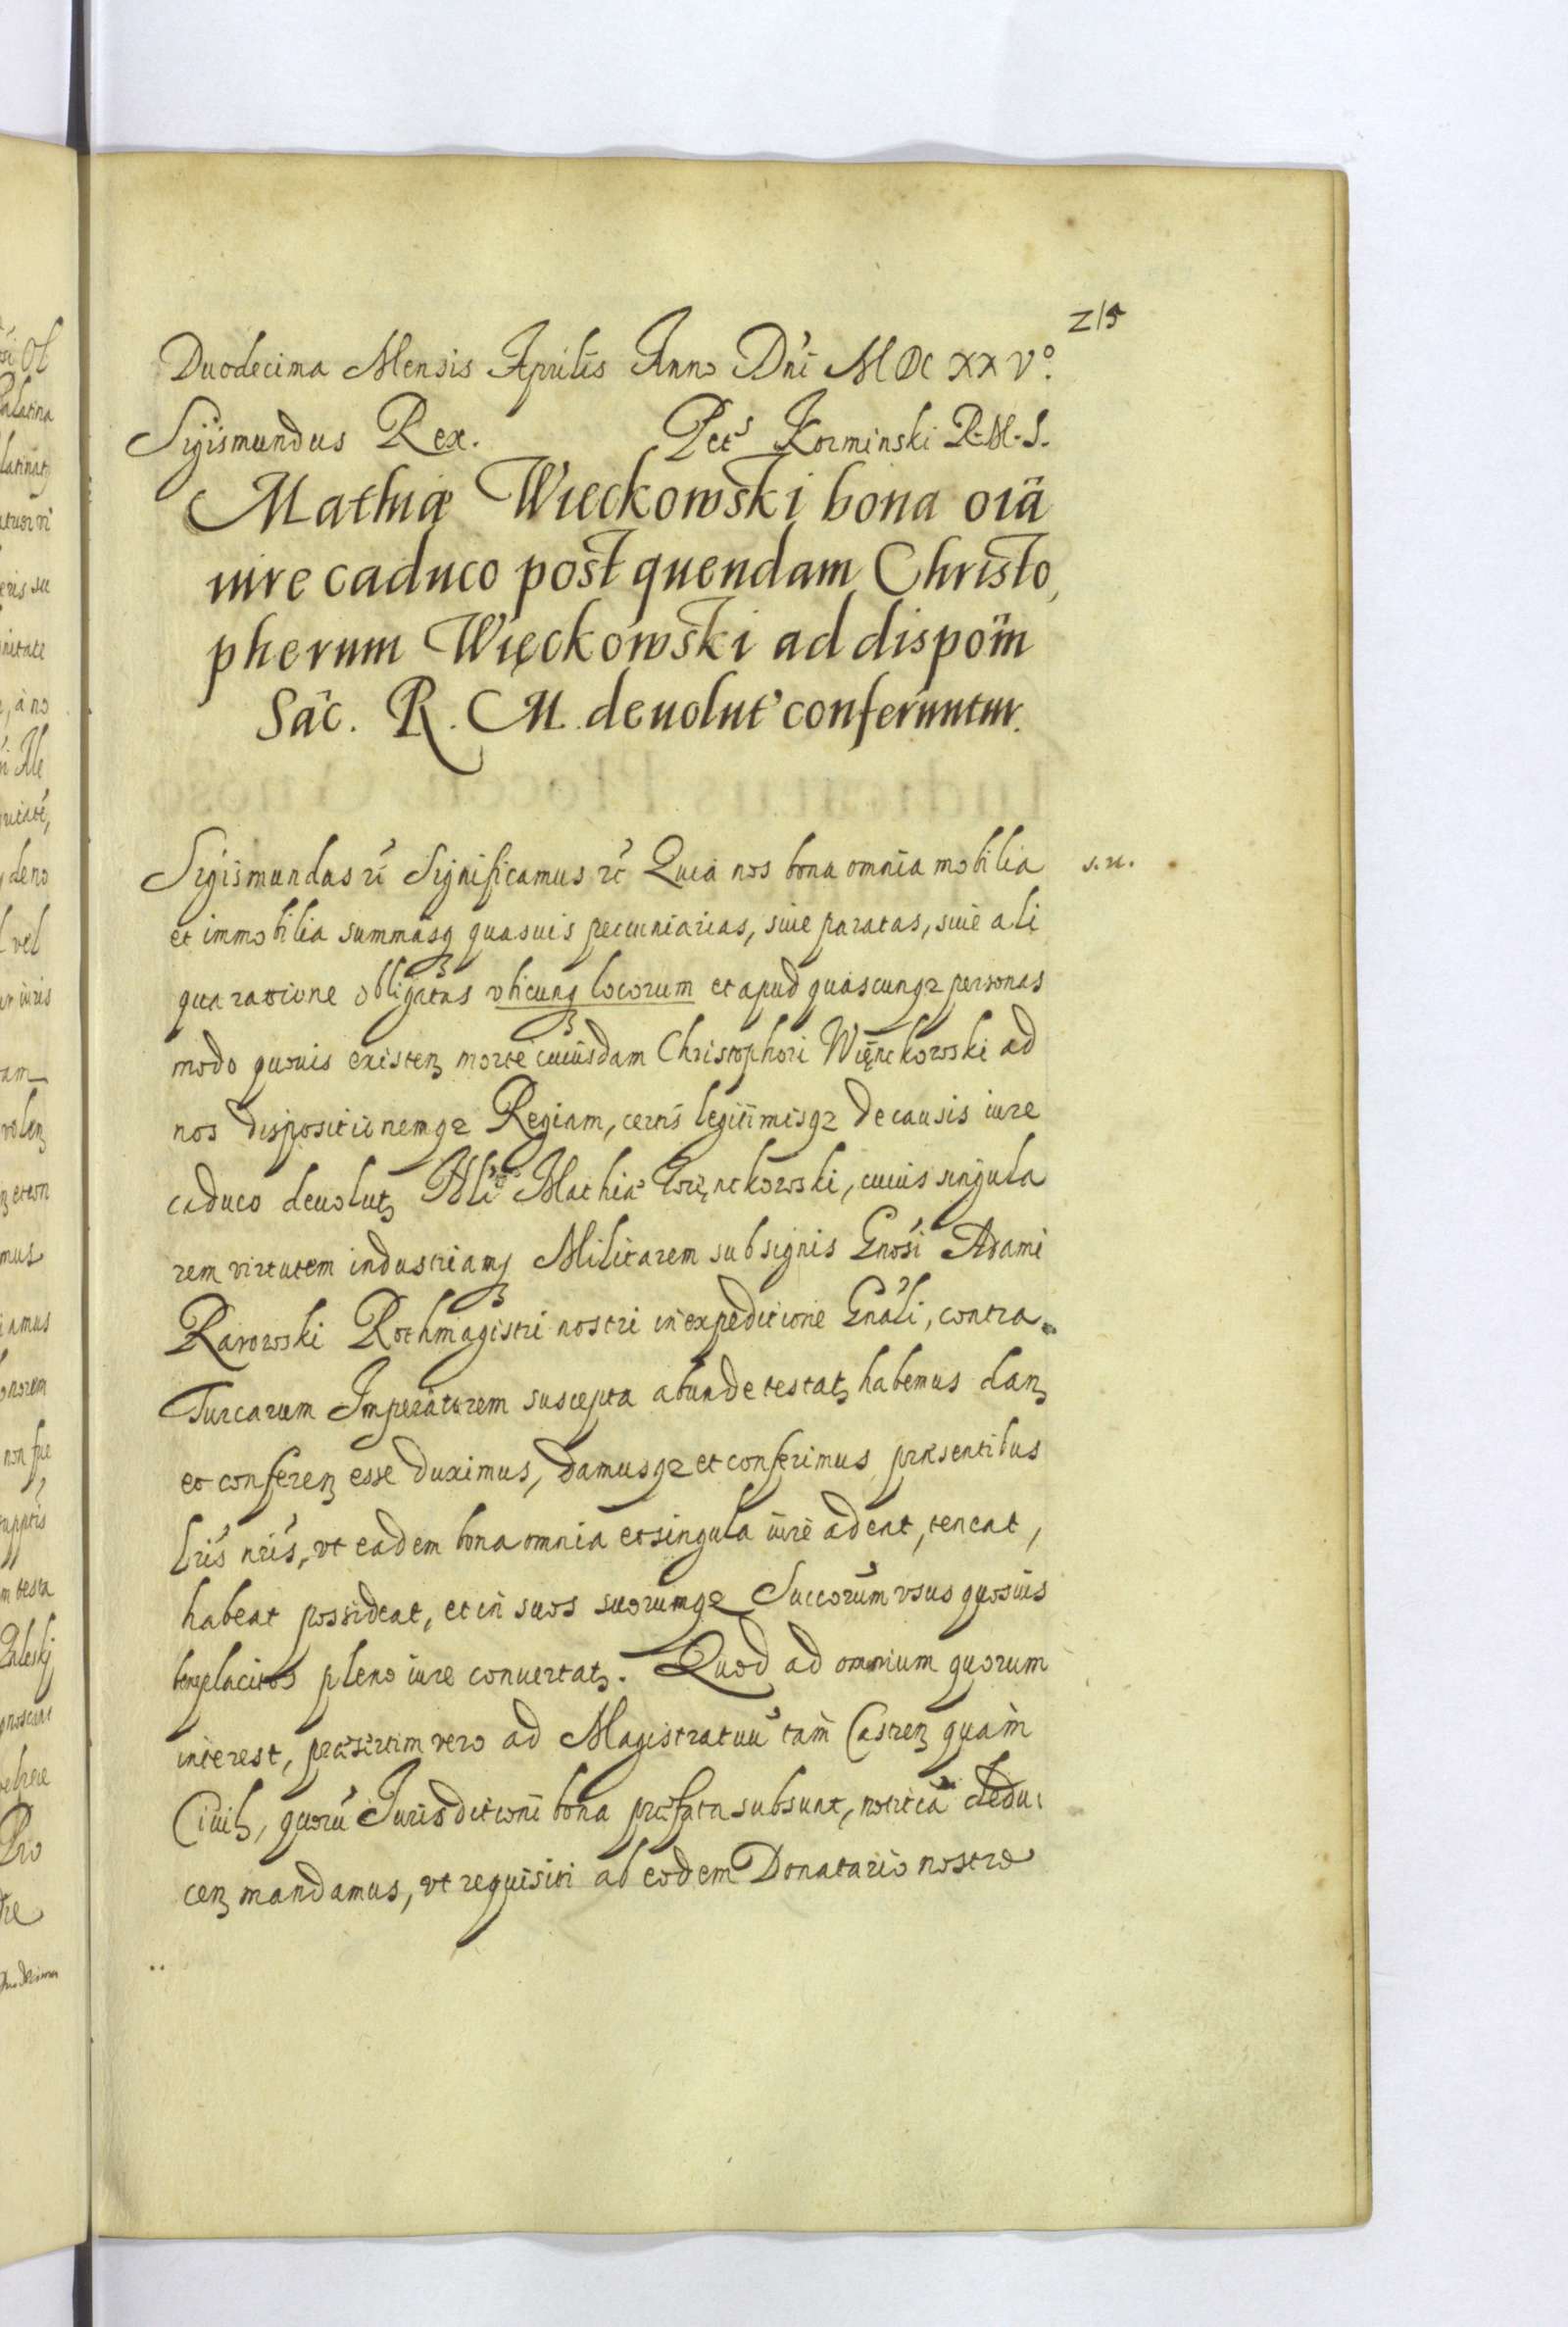 215
Duodecima Mensis Aprilis Anno Dni MDCXXVº.
Sigismundus Rex. Pet' Kozminski R.M.S.
Mathiæ Wieckowski bona oia
iure caduco post quendam Christo,
pherum Więckowski ad dispoin
Sac. R. M. deuolut' conferuntur.
Sigismundus rc Significamus rc Quia nos bona omnia mobilia s.n.
et immobilia summasq quasuis pecuniarias, siue paratas, siue ali
qua ratione obligatas vbicunq locorum et apud quascunqz personas
modo quouis existen morte cuiusdam Christophori Więnckowski ad
nos dispositionemqz Regiam, certis legitimisqz de causis iure
caduco deuolut Nli Mathiæ Więnckowski, cuius singula
rem virtutem industriamq Militarem sub signis Gnosi Adami
Rarowski Rothmagistri nostri in expeditione Gnali, contra
Turcarum Imperatorem suscepta abunde testat habemus dan
et conferen esse duximus, damusqz et conferimus præsentibus
lris nris, vt eadem bona omnia et singula iure adeat, teneat,
habeat possideat, et in suos suorumqz Succorum vsus quosuis
beneplacitos pleno iure conuertat. Quod ad omnium quorum
interest, præsertim vero ad Magistratuu tam Castren quam
Ciuil, quoru Jurisdictioni bona præfata subsunt, notitia dedu
cen mandamus, vt requisiti ab eodem Donatario nostro